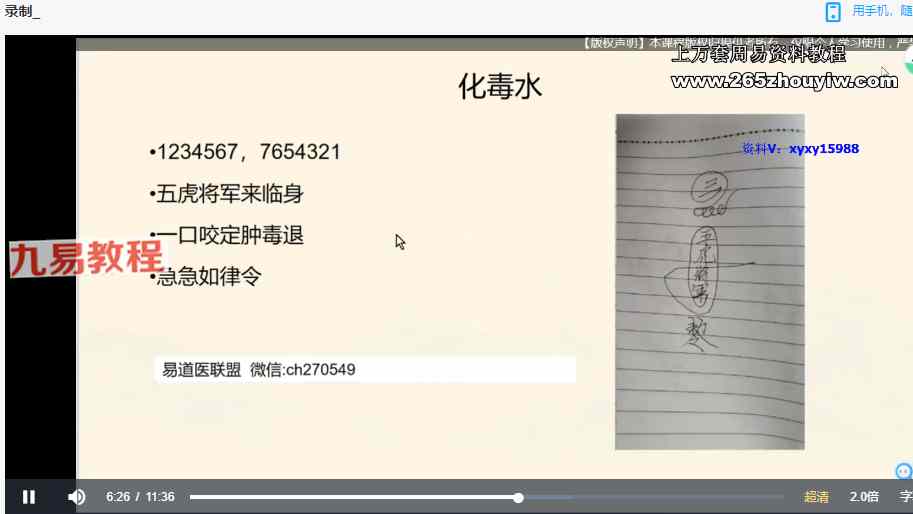 录制_
用手机，随
【版权声明】本课程版权归提供者所有，仅限个人学习使用，严
上万套周易资料教程
www.265zhouyiw.com
化毒水
资料V：xyxy15988
•1234567，7654321
•五虎将军来临身
•一口咬定肿毒退
•急急如律令
九易教程
三
五虎将军
易道医联盟 微信:ch270549
6:26 / 11:36
超清
2.0倍
字